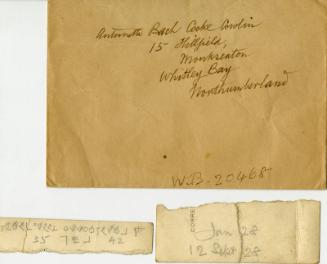 Antoinette Bach Cooke Cowlin
15 Hillfield,
Monkseaton
Whitley Bay
Northumberland
W.B. 20468
Jan 28
12 Sept 28